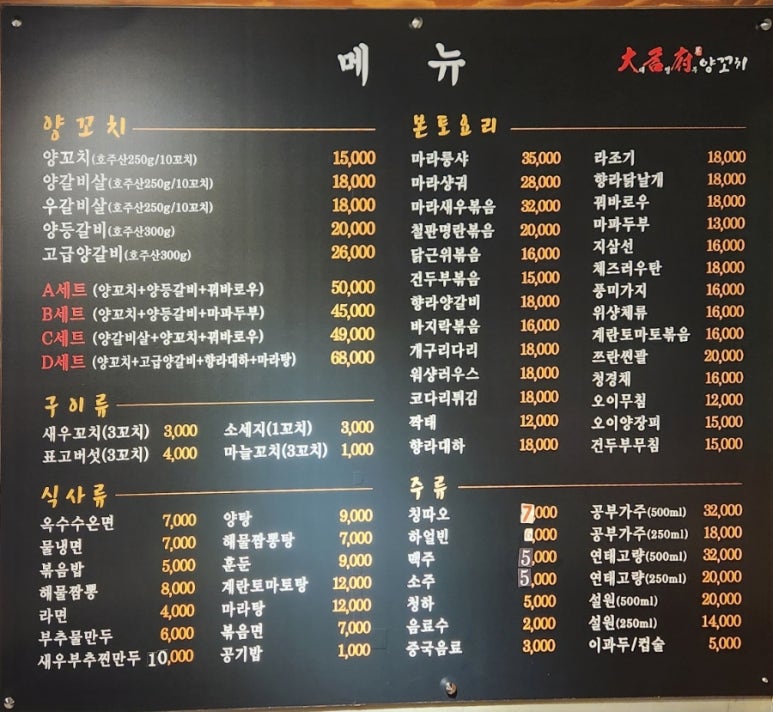 메 뉴
大盛府 양꼬치
양꼬치
양꼬치(호주산250g/10꼬치) 15,000
양갈비살(호주산250g/10꼬치) 18,000
우갈비살(호주산250g/10꼬치) 18,000
양등갈비(호주산300g) 20,000
고급양갈비(호주산300g) 26,000
A세트 (양꼬치+양등갈비+꿔바로우) 50,000
B세트 (양꼬치+양등갈비+마파두부) 45,000
C세트 (양갈비살+양꼬치+꿔바로우) 49,000
D세트 (양꼬치+고급양갈비+향라대하+마라탕) 68,000
구이류
새우꼬치(3꼬치) 3,000
표고버섯(3꼬치) 4,000
소세지(1꼬치) 3,000
마늘꼬치(3꼬치) 1,000
식사류
옥수수온면 7,000
물냉면 7,000
볶음밥 5,000
해물짬뽕 8,000
라면 4,000
부추물만두 6,000
새우부추찐만두 10,000
양탕 9,000
해물짬뽕탕 7,000
훈둔 9,000
계란토마토탕 12,000
마라탕 12,000
볶음면 7,000
공기밥 1,000
본토요리
마라롱샤 35,000
마라샹궈 28,000
마라새우볶음 32,000
철판명란볶음 20,000
닭근위볶음 16,000
건두부볶음 15,000
향라양갈비 18,000
바지락볶음 16,000
개구리다리 18,000
위샹러우스 18,000
코다리튀김 18,000
짝태 12,000
향라대하 18,000
라조기 18,000
향라닭날개 18,000
꿔바로우 18,000
마파두부 13,000
지삼선 16,000
체즈러우탄 18,000
풍미가지 16,000
위샹체류 16,000
계란토마토볶음 16,000
쯔란썬팔 20,000
청경채 16,000
오이무침 12,000
오이양장피 15,000
건두부무침 15,000
주류
칭따오 7,000
하얼빈 ,000
맥주 5,000
소주 5,000
청하 5,000
음료수 2,000
중국음료 3,000
공부가주(500ml) 32,000
공부가주(250ml) 18,000
연태고량(500ml) 32,000
연태고량(250ml) 20,000
설원(500ml) 20,000
설원(250ml) 14,000
이과두/컵술 5,000